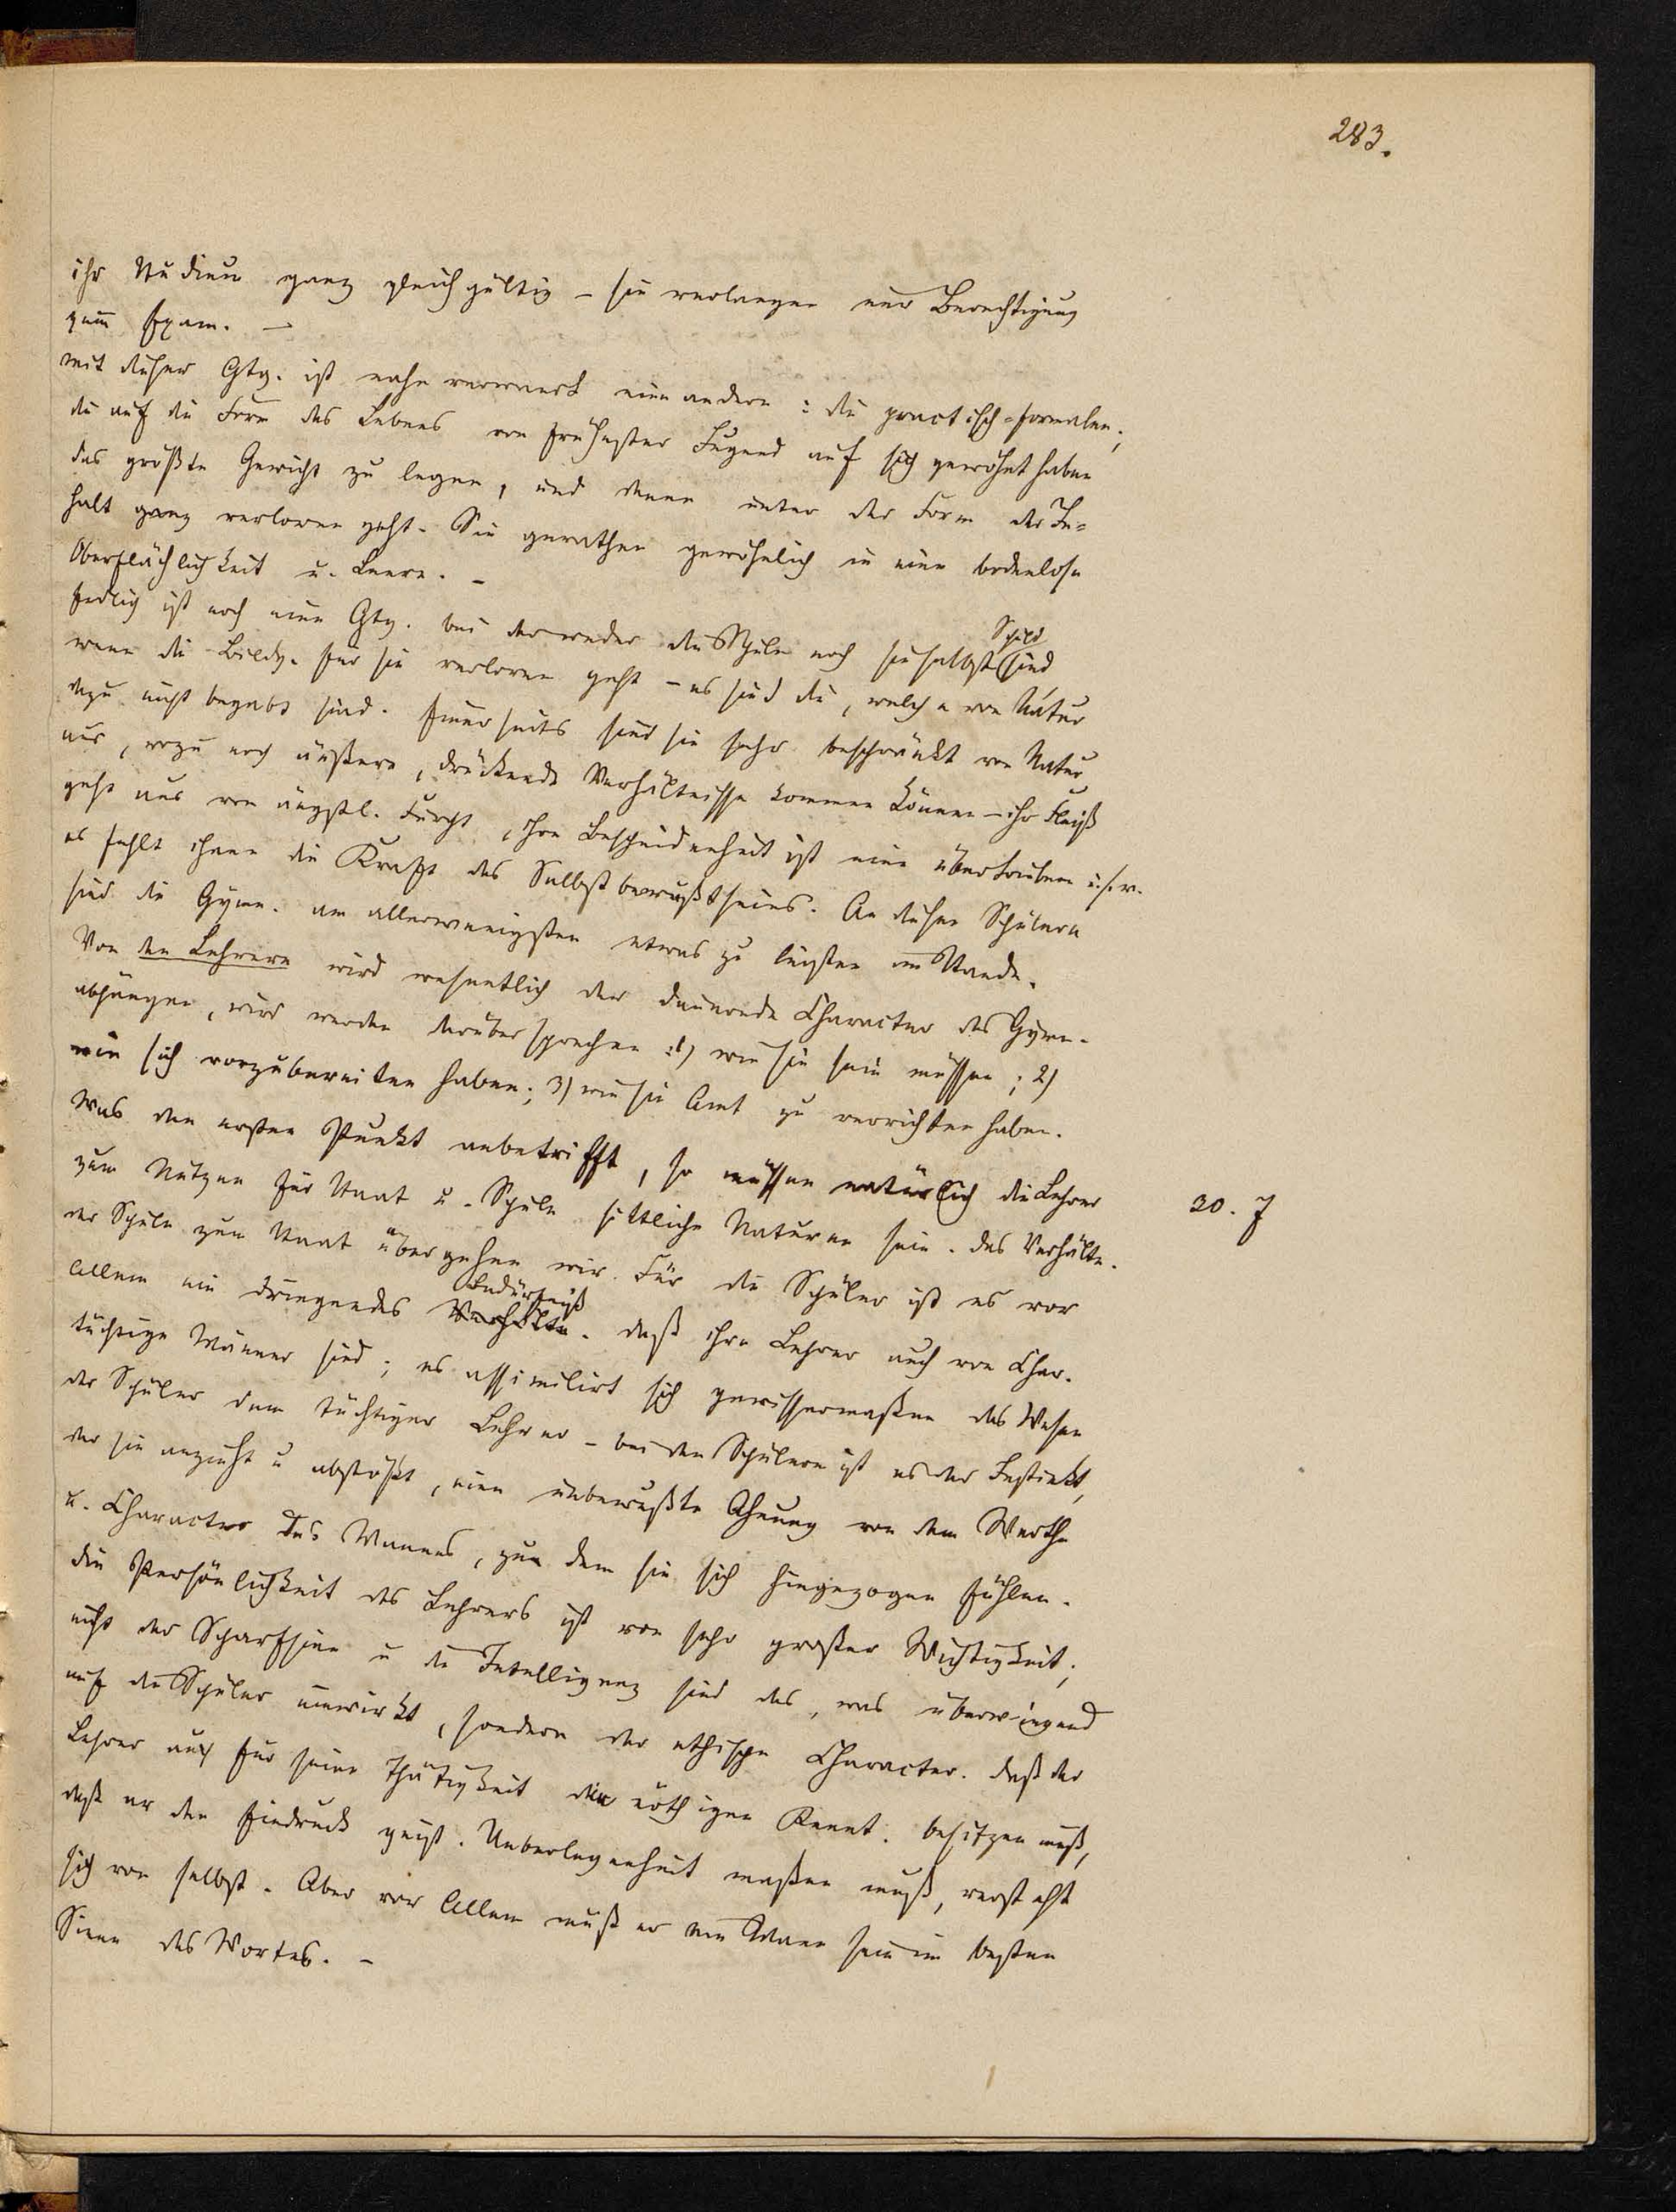 283.
ihr Studium ganz gleichgültig – sie verlangen nur Berechtigung
zum Exam. –
mit dieser Gtg. ist nahe verwandt eine andere: die practisch-formalen;
die auf die Form des Lebens von frühester Jugend auf sich gewöhnt haben
das größte Gewicht zu legen, und denen unter der Form der In-
halt ganz verloren geht. Sie gerathen gewöhnlich in eine bodenlose
Oberflächlichkeit u. Leere. –
Endlich ist noch eine Gtg. bei der weder die Schule noch sie selbst Schuld sind
wenn die Bildg. für sie verloren geht – es sind die, welche von Natur
dazu nicht begabt sind. Einerseits sind sie sehr beschränkt von Natur
aus, wozu noch äußere, drückende Verhältnisse kommen können – ihr Fleiß
geht aus von ängstl. Furcht, ihre Bescheidenheit ist eine übertriebene u.s.w.
es fehlt ihnen die Kraft des Selbstbewußtseins. An diesen Schülern
sind die Gymn. am allerwenigsten etwas zu leisten im Stande.
Von den Lehrern wird wesentlich der dauernde Character des Gymn.
abhängen, wir werden darüber sprechen: 1) wie sie sein müssen; 2)
wie sich vorzubereiten haben; 3) wie sie Amt zu verrichten haben.
Was den ersten Punkt anbetrifft, so müssen natürlich die Lehrer
30. J
zum Nutzen für Staat u. Schule sittliche Naturen sein. Das Verhältn.
der Schule zum Staat übergehen wir. Für die Schüler ist es vor
Allem ein dringendes Bedürfniß daß ihre Lehrer auch von Char.
tüchtige Männer sind; es assimilirt sich gewissermaßen das Wesen
der Schüler dem tüchtigen Lehrer – bei den Schülern ist es der Instinkt,
der sie anzieht u abstößt, eine unbewußte Ahnung von dem Werthe
u. Character des Mannes, zu dem sie sich hingezogen fühlen.
Die Persönlichkeit des Lehrers ist von sehr großer Wichtigkeit;
nicht der Scharfsinn u die Intelligenz sind das, was überwiegend
auf die Schüler einwirkt, sondern der ethische Character. Daß der
Lehrer auch für seine Thätigkeit die nöthigen Kennt. besitzen muß,
daß er den Eindruck geist. Ueberlegenheit machen muß, versteht
sich von selbst. Aber vor Allem muß er ein Mann sein im besten
Sinne des Wortes. –